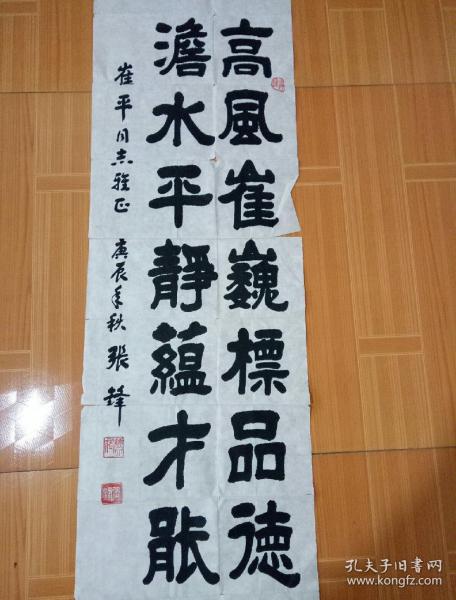 高風崔巍標品德
澹水平靜蘊才能
崔平同志雅正 庚辰年秋 張鋒
孔夫子旧书网
www.kongfz.com